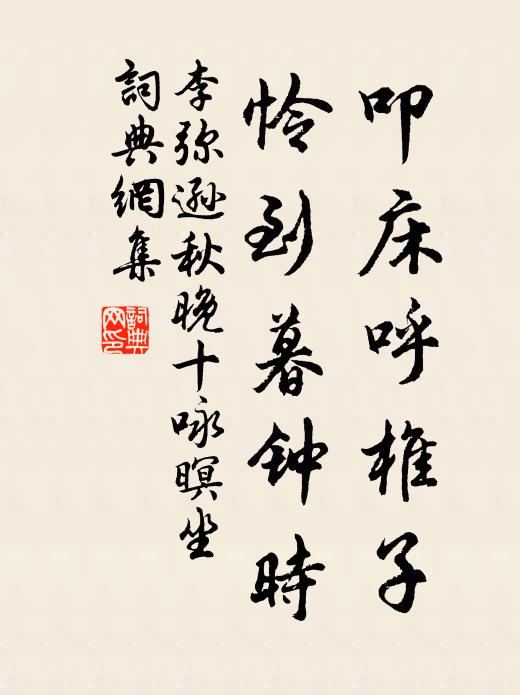 叩床呼椎子
怜到暮钟時
李弥遜秋晚十咏暝坐
詞典網集
詞典网印